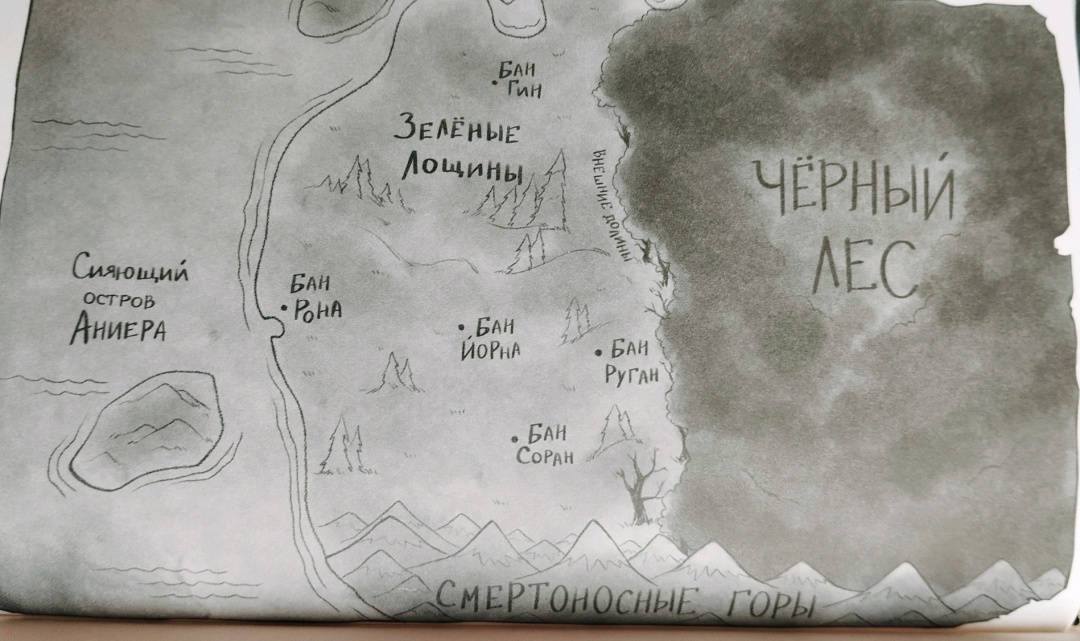 Бан
Гин
Зелёные
Лощины
Внешние долины
Чёрный
лес
Сияющий
остров
Аниера
Бан
Рона
Бан
Йорна
Бан
Руган
Бан
Соран
Смертоносные горы